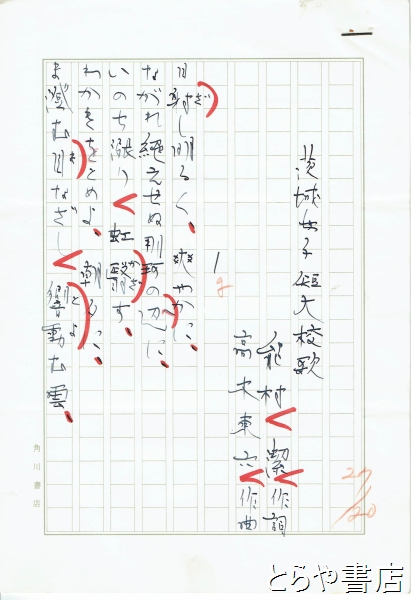 茨城女子短大校歌
能村 潔 作詞
高木東六 作曲
1
日射し明るく、爽やかに、
ざ
ながれ絶えせぬ那珂の辺に、
いのち漲り 虹翳す、
かざ
わかきをとめよ、朝夕に、
ま澄む目なざし 響動む雲、
ま
とよ
29/20
角川書店
とらや書店